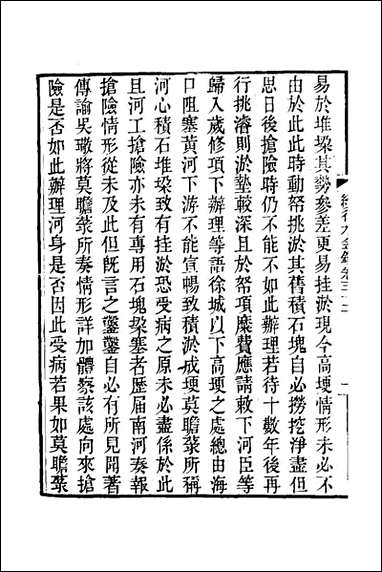 續行水金鑑卷三十二 一
易於堆垜其勢參差更易挂淤現今高埂情形未必不
由於此此時動帑挑淤其舊積石塊自必撈挖淨盡但
思日後搶險時仍不能不如此辦理若待十數年後再
行挑濬則淤墊較深且於帑項糜費應請敕下河臣等
歸入歲修項下辦理等語徐城以下高埂之處總由海
口阻塞黃河下游不能宣暢致積淤成埂莫瞻菉所稱
河心積石堆垜致有挂淤恐受病之原未必盡係於此
且河工搶險亦未有專用石塊垜塞者歷屆南河奏報
搶險情形從未及此但既言之鑿鑿自必有所見聞著
傳諭吳璥將莫瞻菉所奏情形詳加體察該處向來搶
險是否如此辦理河身是否因此受病若果如莫瞻菉